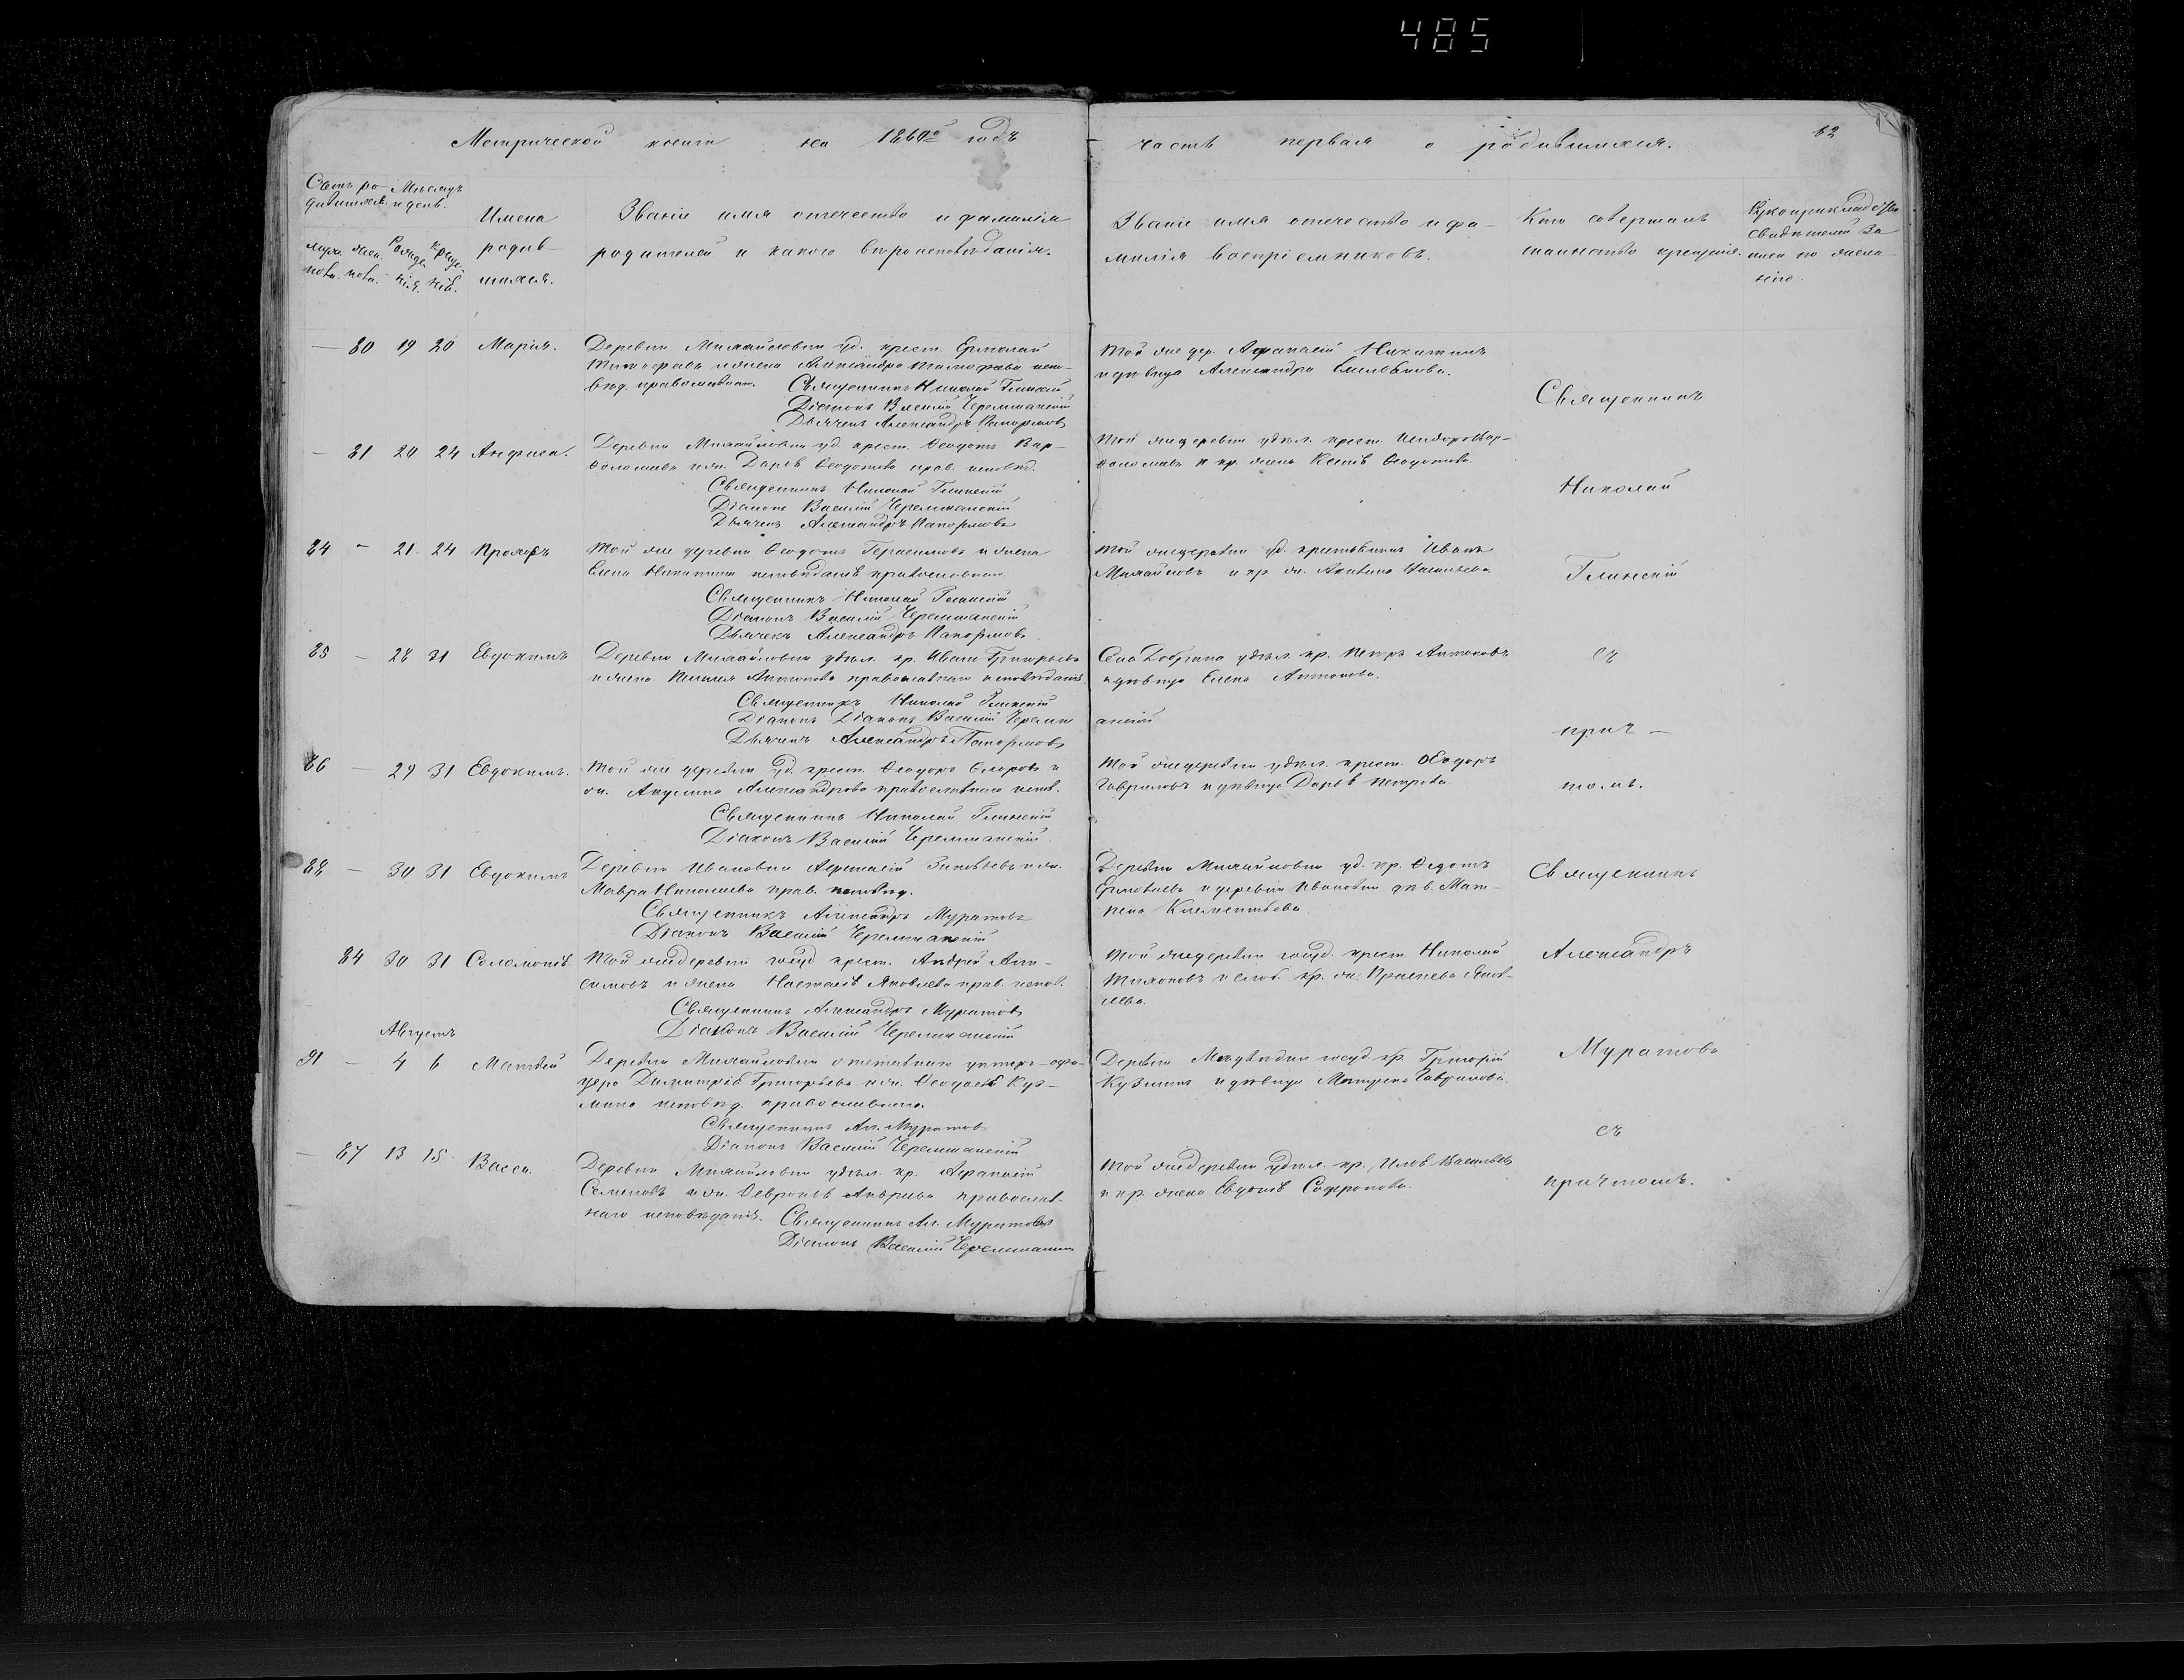 485
Метрической книги на 1860й годъ
часть первая о родившихся.
62
Счетъ ро- Мѣсяцъ
дившихся. и день.
муже. жен. Рожде креще
ска. ска. нія. нія.
Имена
родив-
шихся.
Званіе имя отечество и фамилія
родителей и какого вѣроисповѣданія.
Званіе имя отечество и фа-
милія воспріемниковъ.
Кто совершалъ
таинство крещенія.
Рукоприкладство
свидѣтелей за
писи по жела
нію.
— 80 19 20 Марія.
Деревни Михайловки уд. крест. Ермолай
и жена Александра исповѣд. православнаго.
Священникъ Николай Глинскій
Діаконъ Василій Черемшанскій
Дьячекъ Александръ Папормовъ
Той же дер. Афанасій Никитинъ
и дѣвица Александра Емельянова.
Священникъ
— 81 20 24 Анфиса.
Деревни Михайловки уд. крест. Ѳеодотъ Вар-
ѳоломѣевъ и жен. Дарья Ѳеодотова прав. исповѣд.
Священникъ Николай Глинскій
Діаконъ Василій Черемшанскій
Дьячекъ Александръ Папормовъ
Той же деревни удѣл. крест. Исидоръ Вар-
ѳоломѣевъ и кр. жена Ксенія Ѳеодотова.
Николай
84 — 21 24 Прохоръ
Той же деревни Ѳеодотъ Герасимовъ и жена
Елена Никитина исповѣданія православнаго.
Священникъ Николай Глинскій
Діаконъ Василій Черемшанскій
Дьячекъ Александръ Папормовъ
Той же деревни уд. крестьянинъ Иванъ
Михайловъ и кр. жен. Акилина Васильева
Глинскій
85 — 28 31 Евдокимъ
Деревни Михайловки удѣл. кр. Иванъ Григорьевъ
и жена Антонова православнаго исповѣданія.
Священникъ Николай Глинскій
Діаконъ Діаконъ Василій Черемш
анскій
Дьячекъ Александръ Папормовъ
Села Добрина удѣл. кр. Петръ Антоновъ
и дѣвица Елена Антонова.
съ
прич —
86 — 29 31 Евдокимъ.
Той же деревни уд. крест. Ѳеодоръ и
жен. Акулина Александрова православнаго испов.
Священникъ Николай Глинскій
Діаконъ Василій Черемшанскій
Той же деревни удѣл. крест. Ѳеодоръ
Гавриловъ и дѣвица Дарья Петрова.
томъ.
88 — 30 31 Евдокимъ
Деревни Ивановки Афанасій Зиновьевъ и жен.
Мавра Николаева прав. исповѣд.
Священникъ Александръ Муратовъ
Діаконъ Василій Черемшанскій
Деревни Михайловки уд. кр. Ѳедотъ
Ермолаевъ и деревни Ивановки дѣв. Мат-
рена Климентьева.
Священникъ
84 30 31 Соломонія
Той же деревни госуд. крест. Андрей Ани-
симовъ и жена Наталія Яковлева прав. испов.
Священникъ Александръ Муратовъ
Діаконъ Василій Черемшанскій
Той же деревни госуд. крест. Николай
Тихоновъ и кр. жен. Яков-
лева.
Александръ
Августъ
91 — 4 6 Матвѣй
Деревни Михайловки отставнаго унтеръ-офи-
цера Димитрія Григорьева и жен. Ѳеодосія Куз-
мина исповѣд. православнаго.
Священникъ Ал. Муратовъ
Діаконъ Василій Черемшанскій
Деревни госуд. кр. Григорій
Кузминъ и дѣвица Матрена Гаврилова.
Муратовъ
съ
— 87 13 15. Васса.
Деревни Михайловки удѣл. кр. Афанасій
Семеновъ и жен. Ѳевронія Андреева православ-
наго исповѣданія. Священникъ Ал. Муратовъ
Діаконъ Василій Черемшанскій
Той же деревни удѣл. кр. Илья Васильевъ
и кр. жена Евдокія Софронова.
причтомъ.